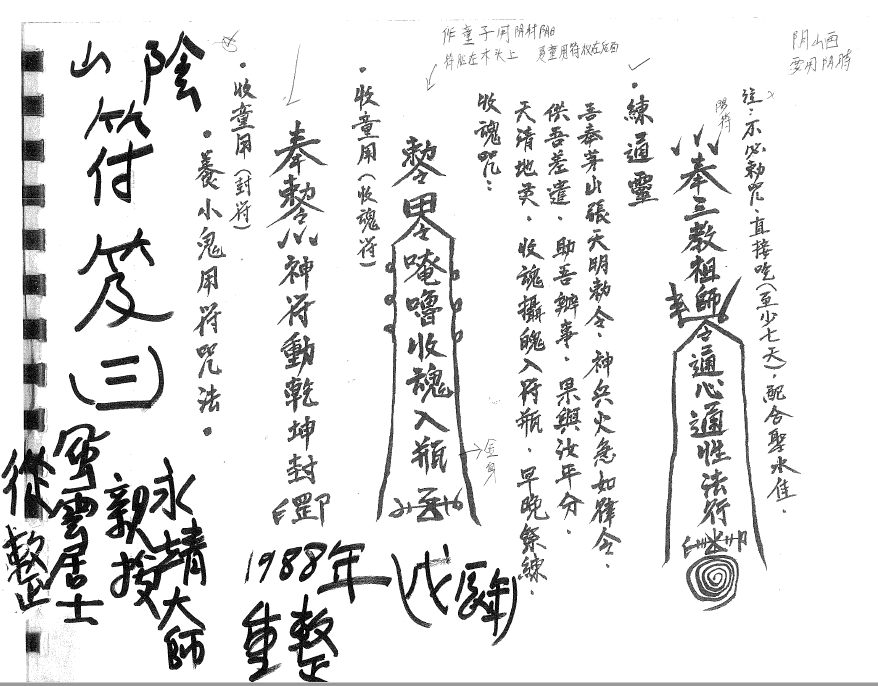 阴山西
要用阴時
註：不必勅咒，直接吃（至少七天），配合聖水佳。
陽符
奉三教祖師
令通心通性法行
練通靈
吾奉茅山張天明勅令，神兵火急如律令，
供吾差遣，助吾辦事，果與汝年分，
天清地英，收魂攝魄入符瓶，早晚祭練。
收魂咒：
符貼在木头上
勅令
唵嚕收魂入瓶
金身
收童用（收魂符）
奉勅令神符動乾坤封
收童用（封符）
養小鬼用符咒法
陰
山
符
笈
（三）
永靖大師
親授
風雲居士
從整
1988年（戊辰年）
重整